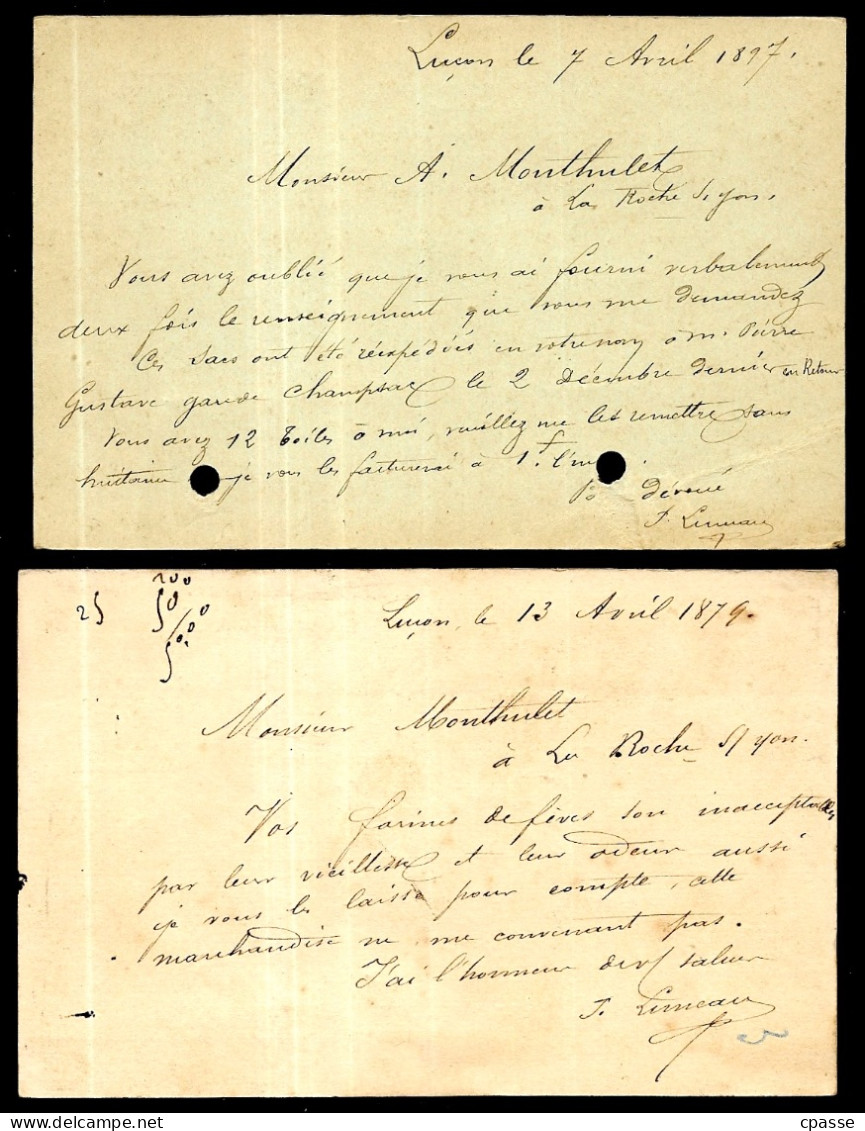 Luçon le 7 Avril 1897.
Monsieur A. Monthulet
à La Roche s/yon.
Vous avez oublié que je vous ai fourni verbalement
deux fois le renseignement que vous me demandez
Ces sacs ont été réexpédiés en votre nom à M. Pierre
Gustave garde Champsac le 2 Décembre dernier en Retour
Vous avez 12 toiles à moi, veuillez me les remettre sans
huitaine je vous les facturerai à 1f. l'une.
dévoué
J. Luneau
200
25
50
100
50
Luçon, le 13 Avril 1879.
Monsieur Monthulet
à La Roche s/yon.
Vos farines de fèves son inacceptables
par leur vieillesse et leur odeur aussi
je vous les laisse pour compte, cette
marchandise ne me convenant pas.
J'ai l'honneur de vs saluer
J. Luneau
cpasse